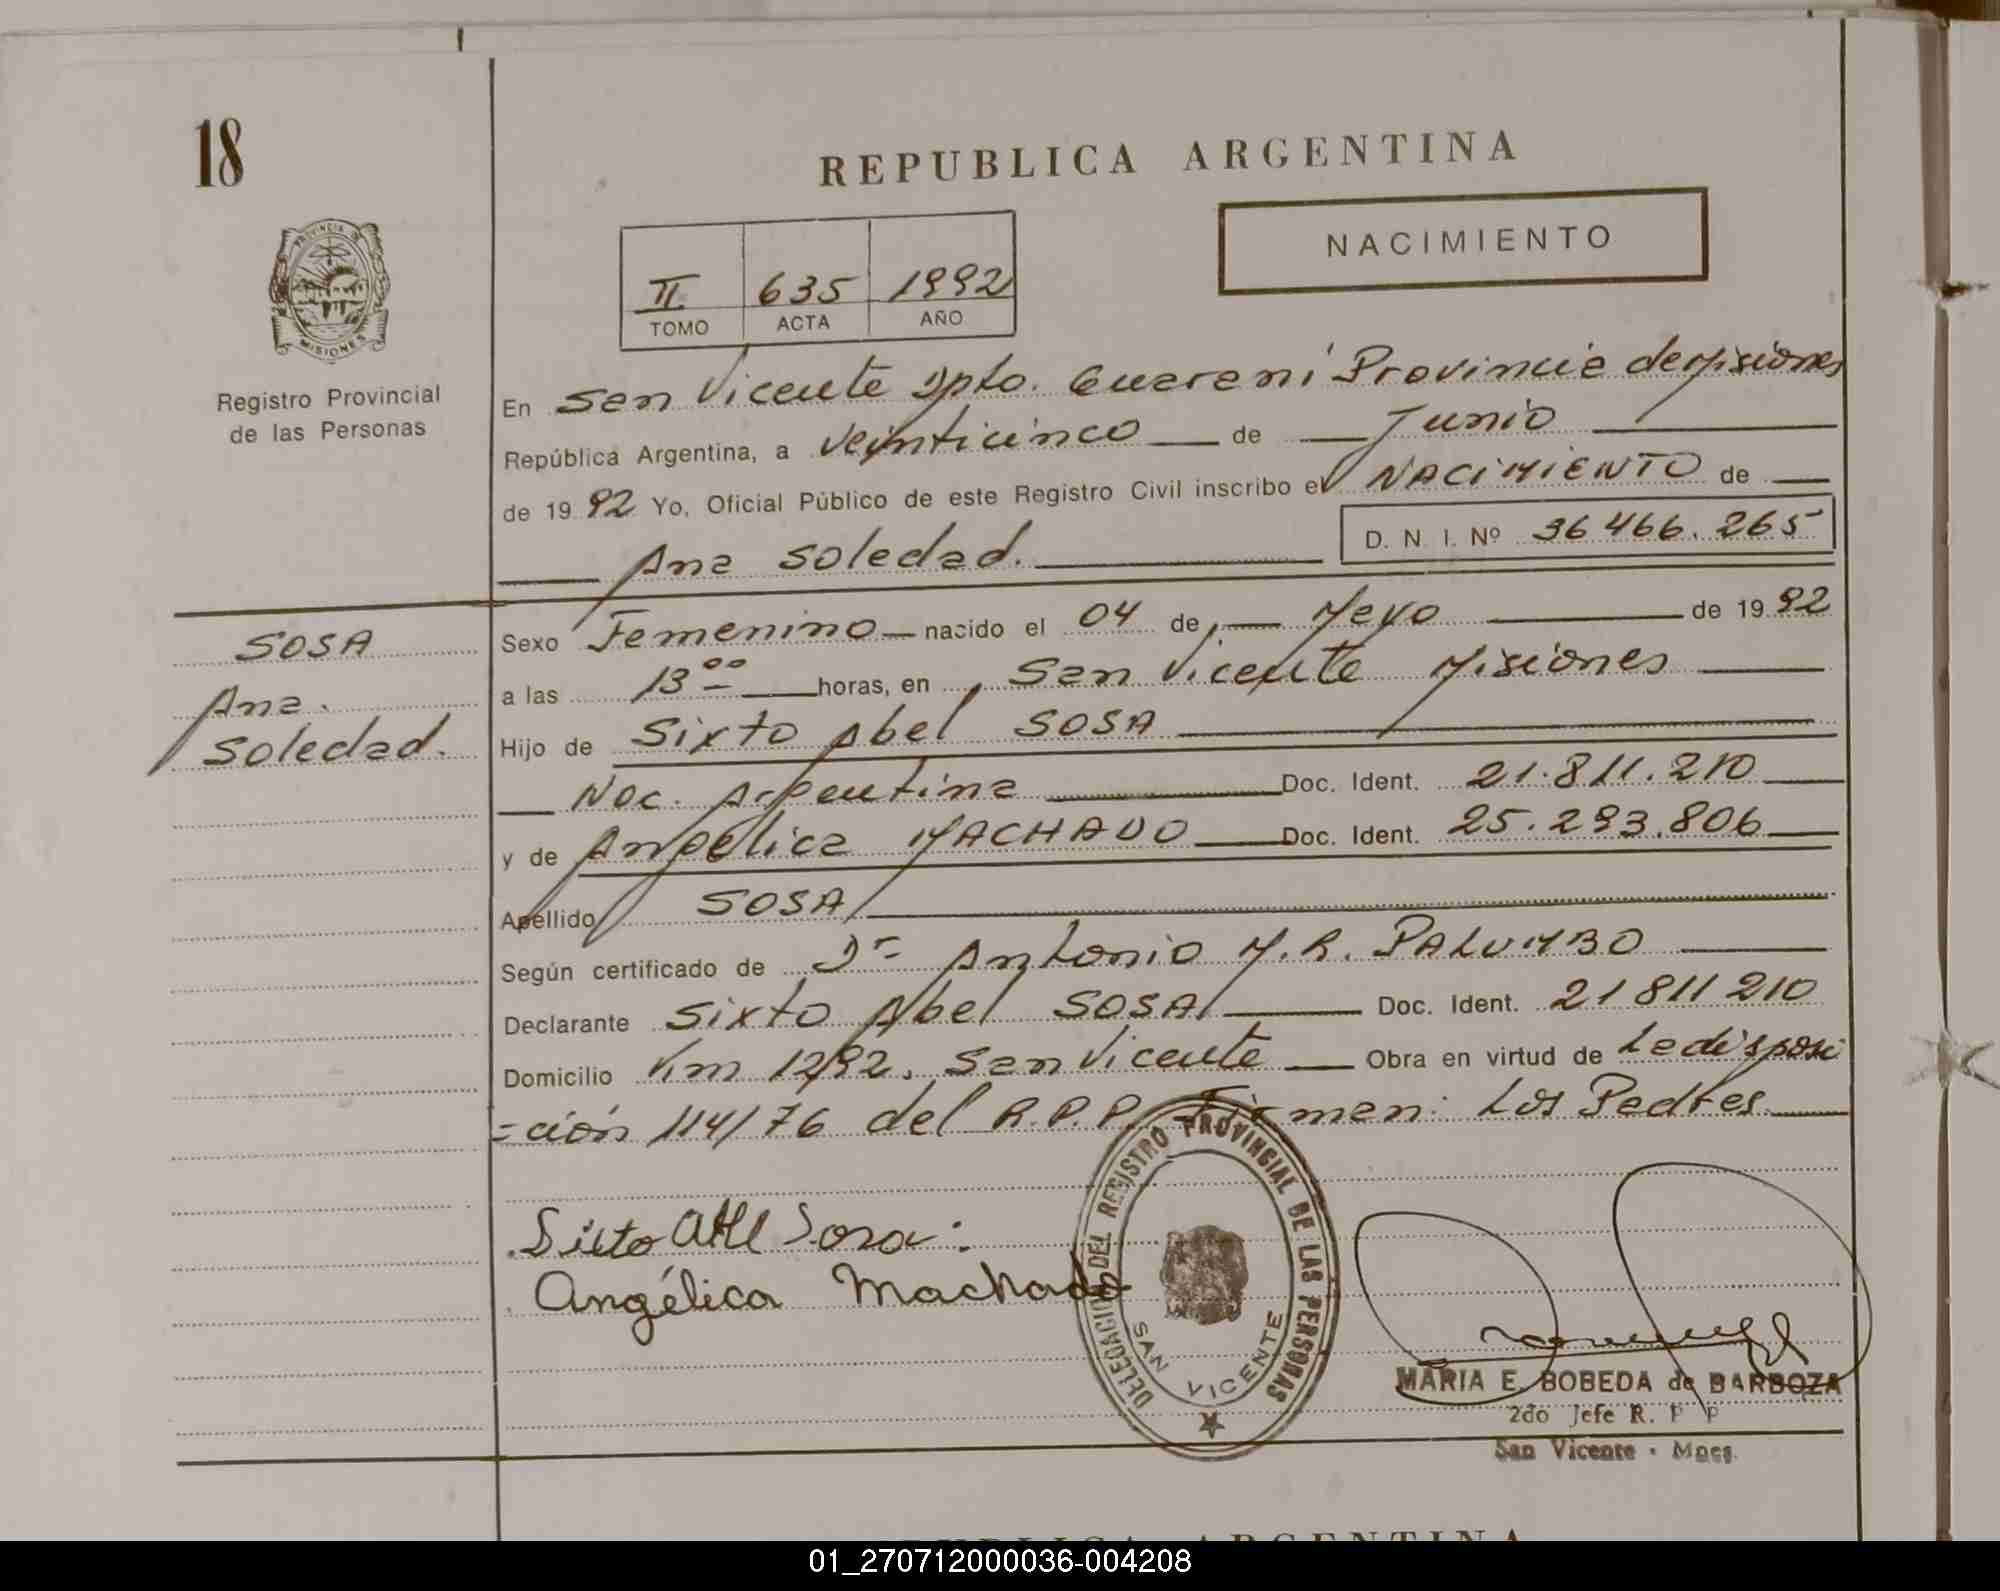 18
REPUBLICA ARGENTINA
NACIMIENTO
PROVINCIA DE
MISIONES
II 635 1992
TOMO ACTA AÑO
Registro Provincial
de las Personas
En San Vicente Dpto. Guaraní Provincia de Misiones
República Argentina, a veinticinco de Junio
de 1992 Yo, Oficial Público de este Registro Civil inscribo el NACIMIENTO de
Ana Soledad. D. N. I. Nº 36466.265
SOSA
Ana.
Soledad.
Sexo Femenino nacido el 04 de Mayo de 1992
a las 13 00 horas, en San Vicente Misiones
Hijo de Sixto Abel SOSA
Nac. Argentina Doc. Ident. 21.811.210
y de Angelica MACHADO Doc. Ident. 25.293.806
Apellido SOSA
Según certificado de Dr Antonio M.R. PALUMBO
Declarante Sixto Abel SOSA Doc. Ident. 21811210
Domicilio Km 1292. San Vicente Obra en virtud de La disposi
=ción 114/76 del R.P.P. Firman: Los Padres
Sixto Abel Sosa.
Angélica Machado
DELEGACION DEL REGISTRO PROVINCIAL DE LAS PERSONAS
SAN VICENTE
MARIA E. BOBEDA de BARBOZA
2do Jefe R. P P
San Vicente - Mnes.
REPUBLICA ARGENTINA
01_270712000036-004208